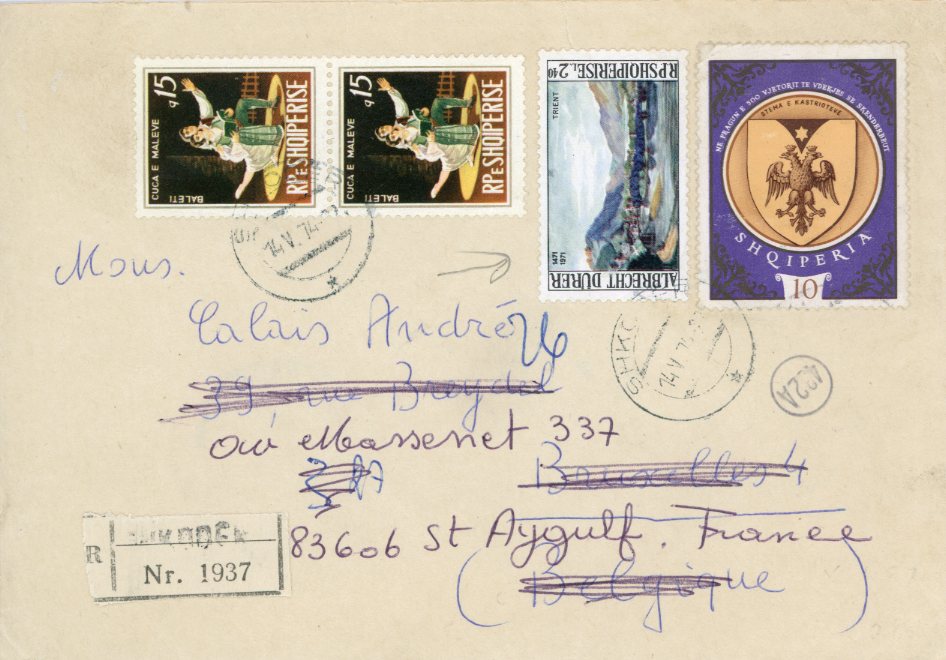 RP E SHQIPERISE
q 15
CUCA E MALEVE
BALETI
RP E SHQIPERISE
q 15
CUCA E MALEVE
BALETI
RPSHQIPERISE L 2 40
TRIENT
1471
1971
ALBRECHT DÜRER
NE PRAGUN E 500 VJETORIT TE VDEKJES SE SKENDERBEUT
STEMA E KASTRIOTEVE
SHQIPERIA
10
14 V. 74
SHKO
14 V 7
422A
Mous.
Calais André
39, rue Breydel
Massenet 337
Bruxelles 4
83606 St Aygulf. France
(Belgique)
R
Nr. 1937